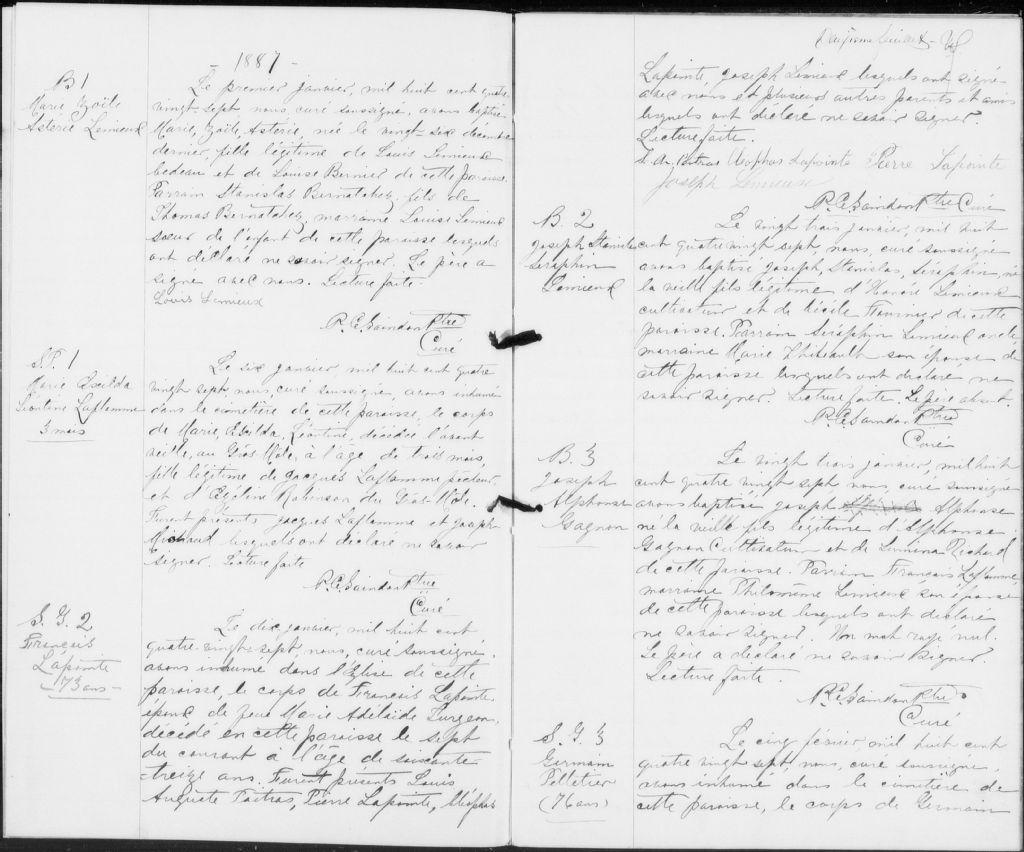 - 1887 -
B 1
Marie Zoïle
Astérie Lemieux
Le premier janvier, mil huit cent quatre
vingt sept nous curé soussigné, avons baptisé
Marie, Zoïle, Astérie, née le vingt six décembre
dernier, fille légitime de Louis Lemieux
bedeau et de Louise Bernier de cette paroisse.
Parrain Stanislas Bernatchez, fils de
Thomas Bernatchez, marraine Louise Lemieux
sœur de l'enfant de cette paroisse lesquels
ont déclaré ne savoir signer. Le père a
signé avec nous. Lecture faite.
Louis Lemieux
R. C. Saindon Ptre
Curé
S. P. 1
Marie Exilda
Léontine Laflamme
3 mois
Le six janvier, mil huit cent quatre
vingt sept, nous, curé soussigné, avons inhumé
dans le cimetière de cette paroisse, le corps
de Marie, Exilda, Léontine, décédée l'avant
veille, au Gros-Mole, à l'age de trois mois,
fille légitime de Jacques Laflamme pêcheur
et d'Ezéline Robinson du Gros-Mole.
Furent présents Jacques Laflamme et Joseph
Michaud lesquels ont déclaré ne savoir
signer. Lecture faite
R. C. Saindon Ptre
Curé
S. G. 2
François
Lapointe
73 ans -
Le dix janvier, mil huit cent
quatre vingt-sept, nous, curé soussigné.
avons inhumé dans l'Eglise de cette
paroisse, le corps de François Lapointe
époux de feue Marie Adélaïde Turgeon,
décédé en cette paroisse le sept
du courant à l'âge de soixante
-treize ans. Furent présents Louis
Auguste Poitras, Pierre Lapointe, Cléophas
Deuxième feuillet -
Lapointe, Joseph Lemieux lesquels ont signé
avec nous et plusieurs autres parents et amis
lesquels ont déclaré ne savoir signer.
Lecture faite.
Cléophas Lapointe Pierre Lapointe
Joseph Lemieux
R. C. Saindon Ptre Curé
B. 2
Joseph Stanislas
Séraphin
Lemieux
Le vingt trois janvier, mil huit
cent quatre vingt sept nous, curé soussigné
avons baptisé Joseph, Stanislas, Séraphin, né
la veille fils légitime d'Honoré Lemieux
cultivateur et de Cécile Fournier de cette
paroisse. Parrain Séraphin Lemieux oncle,
marraine Marie Thibeault son épouse de
cette paroisse lesquels ont déclaré ne
savoir signer. Lecture faite. Le père absent.
R. C. Saindon Ptre
Curé
B. 3
Joseph
Alphonse
Gagnon
Le vingt trois janvier, mil huit
cent quatre vingt sept nous, curé soussigné
avons baptisé Joseph Alphonse
né la veille fils légitime d'Alphonse
Gagnon Cultivateur et de Lumina Richard
de cette paroisse. Parrain François Laflamme,
marraine Philomène Lemieux son épouse
de cette paroisse lesquels ont déclaré
ne savoir signer. Un mot rayé nul.
Le père a déclaré ne savoir signer.
Lecture faite.
R. C. Saindon Ptre
Curé
S. G. 3
Germain
Pelletier
(76 ans)
Le cinq février, mil huit cent
quatre vingt sept, nous, curé soussigné,
avons inhumé dans le cimetière de
cette paroisse, le corps de Germain